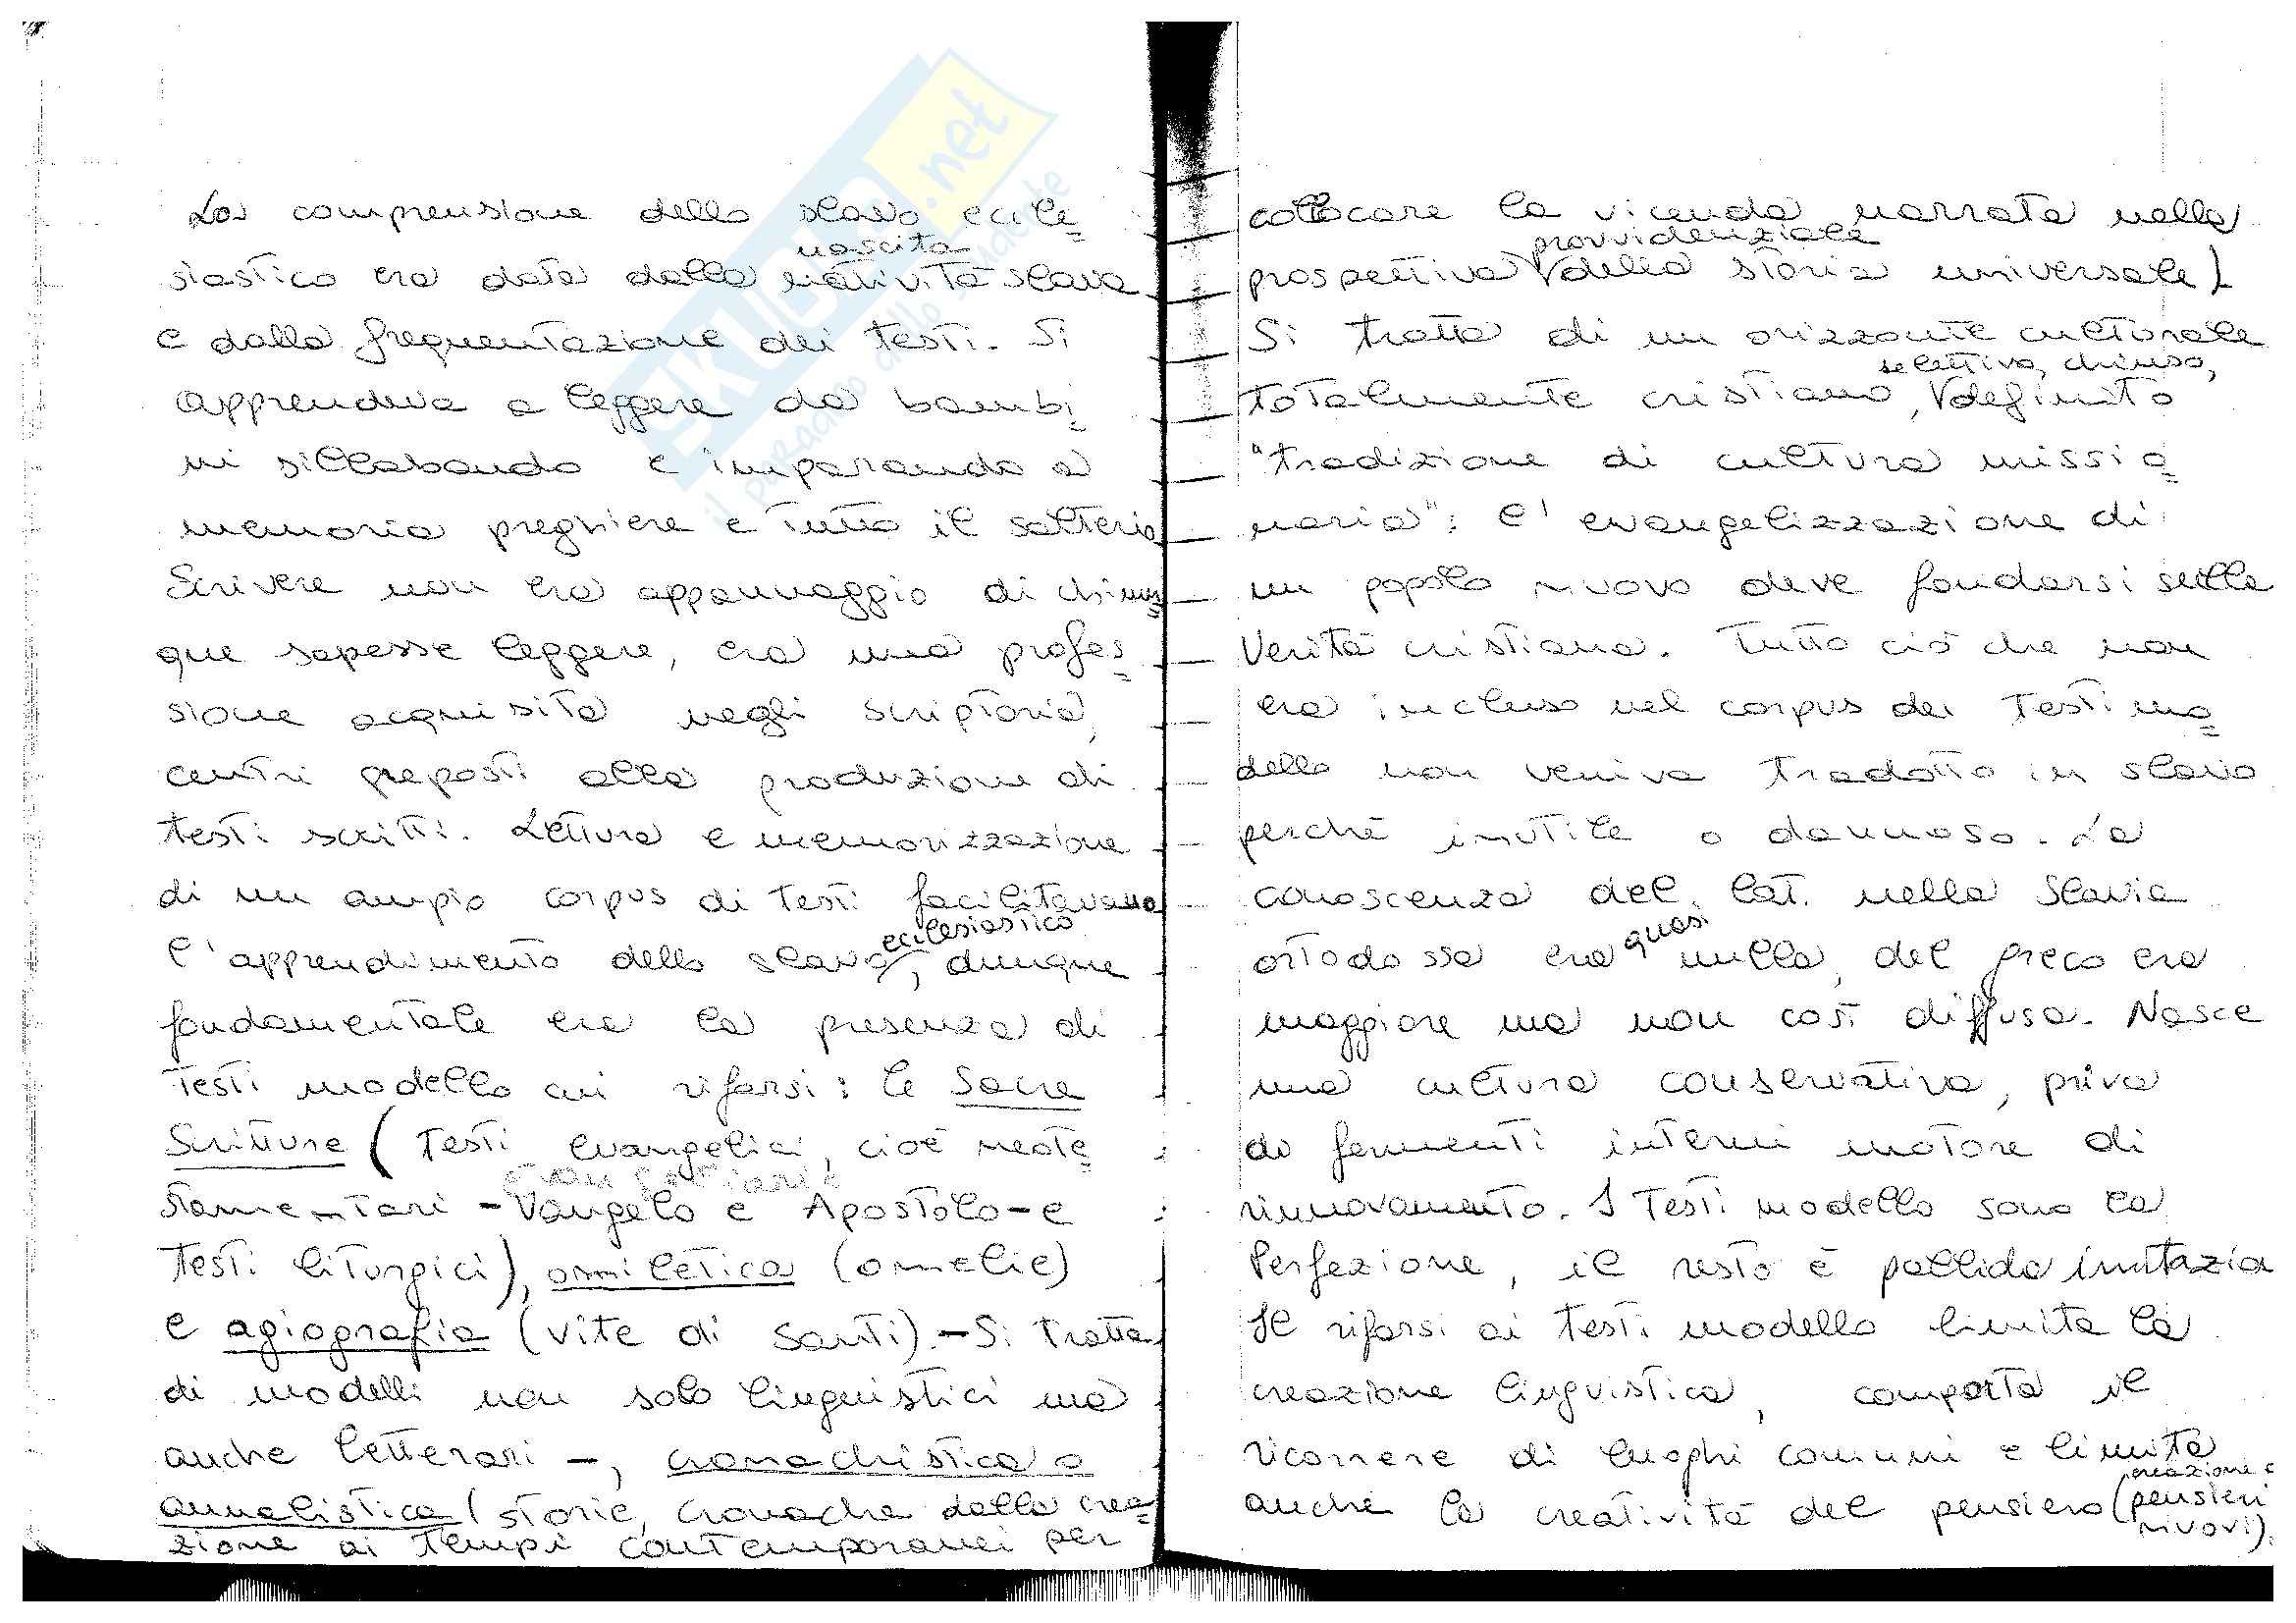 La comprensione dello slavo eccle=
nascita
siastico era data dalla natività slava
e dalla frequentazione dei testi. Si
apprendeva a leggere da bambi=
ni sillabando e imparando a
memoria preghiere e tutto il salterio
Scrivere non era appannaggio di chiun=
que sapesse leggere, era una profes=
sione acquisita negli scriptoria,
centri preposti alla produzione di
testi scritti. Lettura e memorizzazione
di un ampio corpus di testi facilitavano
ecclesiastico
l'apprendimento dello slavo, dunque
fondamentale era la presenza di
testi modello cui rifarsi: le Sacre
Scritture (testi evangelici, cioè neote=
stamentari - Vangelo e Apostolo - e
testi liturgici), omiletica (omelie)
e agiografia (vite di santi). - Si tratta
di modelli non solo linguistici ma
anche letterari -, cronachistica o
annalistica (storie, cronache dalla crea=
zione ai tempi contemporanei per
collocare la vicenda narrata nella
provvidenziale
prospettiva V della storia universale)
Si tratta di un orizzonte culturale
selettivo, chiuso,
totalmente cristiano, V definito
"tradizione di cultura missio=
naria": l'evangelizzazione di
un popolo nuovo deve fondarsi sulla
Verità cristiana. Tutto ciò che non
era incluso nel corpus dei testi mo=
dello non veniva tradotto in slavo
perché inutile o dannoso. La
conoscenza del lat. nella Slavia
quasi
ortodossa era nulla, del greco era
maggiore ma non così diffusa. Nasce
una cultura conservativa, priva
di fermenti interni motore di
rinnovamento. I testi modello sono la
Perfezione, il resto è pallida imitazio
Il rifarsi ai testi modello limita la
creazione linguistica, comporta il
ricorrere di luoghi comuni e limita
creazione e
anche la creatività del pensiero (pensieri
nuovi).
SKUOLA.net
il paradiso dello studente